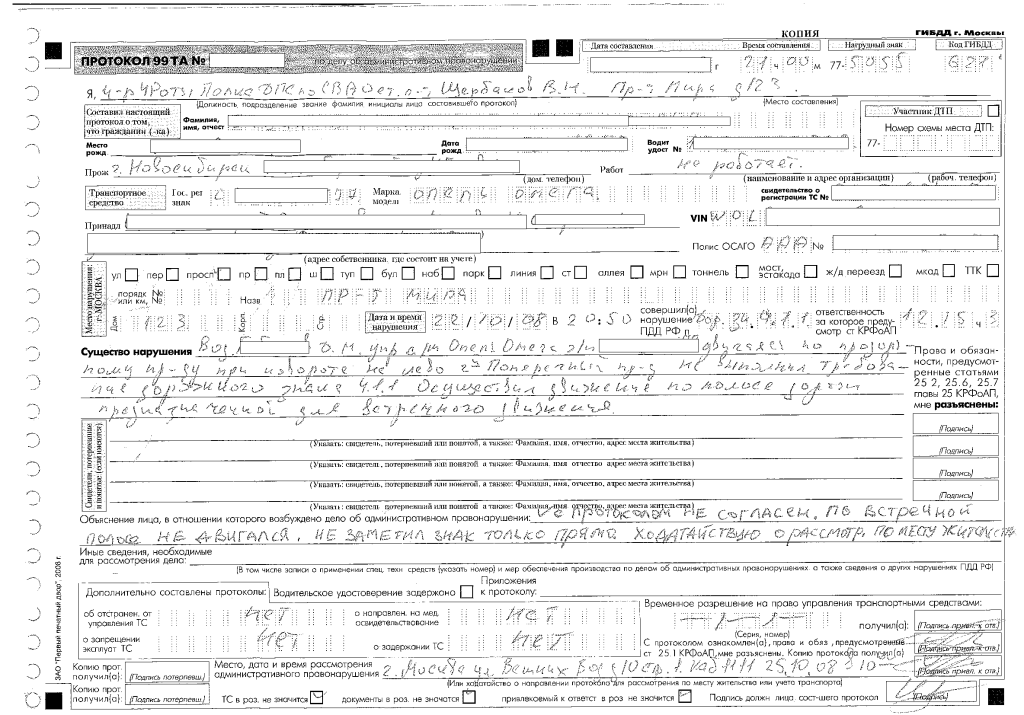 КОПИЯ ГИБДД г. Москвы
ПРОТОКОЛ 99 ТА № по делу об административном правонарушении
Дата составления Время составления Нагрудный знак Код ГИБДД
г 21 ч 00 м 77- 5055
Я, Щербаков В.Н. Пр-т Мира д 123.
(Должность, подразделение звание фамилия, инициалы лица составившего протокол) (Место составления)
Составил настоящий протокол о том, что гражданин (-ка)
Фамилия, имя, отчест
Участник ДТП
Номер схемы места ДТП:
77-
Место рожд Дата рожд Водит удост №
Прож г. Новосибирск Работ не работает.
(дом. телефон) (наименование и адрес организации) (рабоч. телефон)
Транспортное средство Гос. рег знак Марка. модель опель омега. свидетельство о регистрации ТС №
Принадл VIN WOL
Полис ОСАГО ААА №
(адрес собственника, где состоит на учете)
Место нарушения: г. МОСКВА
ул пер просп пр пл ш туп бул наб парк линия ст аллея мрн тоннель мост, эстакада ж/д переезд мкад ТТК
порядк № или км, № Назв ПР-Т МИРА
Дом 123 Корп. Дата и время нарушения 22/10/08 в 20:50 совершил(а) нарушение ПДД РФ п ответственность за которое предусмотр ст КРФоАП 12.15 ч 3
Существо нарушения
при повороте на лево не выполнил требова-
ние дорожного знака 4.1.1 Осуществил движение по полосе дороги
предназначенной для встречного движения
Права и обязанности, предусмотренные статьями 25 2, 25.6, 25.7 главы 25 КРФоАП, мне разъяснены:
(Подпись)
(Подпись)
(Подпись)
(Подпись)
Свидетели, потерпевшие и понятые: (если имеются)
(Указать: свидетель, потерпевший или понятой, а также: Фамилия, имя, отчество, адрес места жительства)
(Указать: свидетель, потерпевший или понятой, а также: Фамилия, имя, отчество, адрес места жительства)
(Указать: свидетель, потерпевший или понятой, а также: Фамилия, имя, отчество, адрес места жительства)
(Указать: свидетель, потерпевший или понятой, а также: Фамилия, имя, отчество, адрес места жительства)
Объяснение лица, в отношении которого возбуждено дело об административном правонарушении: С ПРОТОКОЛОМ НЕ СОГЛАСЕН. ПО ВСТРЕЧНОЙ
ПОЛОСЕ НЕ ДВИГАЛСЯ. НЕ ЗАМЕТИЛ ЗНАК ТОЛЬКО ПРЯМО. ХОДАТАЙСТВУЮ О РАССМОТР. ПО МЕСТУ
Иные сведения, необходимые для рассмотрения дела:
(В том числе записи о применении спец. техн средств (указать номер) и мер обеспечения производства по делам об административных правонарушениях. а также сведения о других нарушениях ПДД РФ)
Дополнительно составлены протоколы: Водительское удостоверение задержано Приложения к протоколу:
об отстранен. от управления ТС НЕТ о направлен. на мед. освидетельствование НЕТ
о запрещении эксплуат ТС НЕТ о задержании ТС НЕТ
Временное разрешение на право управления транспортными средствами:
(Серия, номер) получил(а): (Подпись привл. к отв.)
С протоколом ознакомлен(а), права и обяз, предусмотренные ст 25 1 КРФоАП, мне разъяснены. Копию протокола получил(а) (Подпись привл. к отв.)
(Подпись привл. к отв.)
Копию прот. получил(а): (Подпись потерпевш.)
Место, дата и время рассмотрения административного правонарушения г. Москва 25.10.08
(Или ходатайство о направлении протокола для рассмотрения по месту жительства или учета транспорта)
Копию прот. получил(а): (Подпись потерпевш.)
ТС в роз. не значится документы в роз. не значатся привлекаемый к ответст. в роз не значится Подпись должн лица. сост-шего протокол (Подпись)
ЗАО "Первый печатный двор", 2008 г.